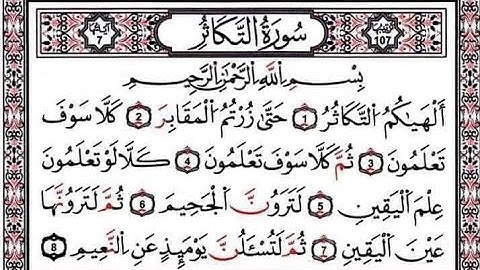 107
سُورَةُ التَّكَاثُرِ
آيَاتُهَا
7
بِسْمِ اللَّهِ الرَّحْمَٰنِ الرَّحِيمِ
أَلْهَىٰكُمُ التَّكَاثُرُ 1 حَتَّىٰ زُرْتُمُ الْمَقَابِرَ 2 كَلَّا سَوْفَ
تَعْلَمُونَ 3 ثُمَّ كَلَّا سَوْفَ تَعْلَمُونَ 4 كَلَّا لَوْ تَعْلَمُونَ
عِلْمَ الْيَقِينِ 5 لَتَرَوُنَّ الْجَحِيمَ 6 ثُمَّ لَتَرَوُنَّهَا
عَيْنَ الْيَقِينِ 7 ثُمَّ لَتُسْـَٔلُنَّ يَوْمَئِذٍ عَنِ النَّعِيمِ 8